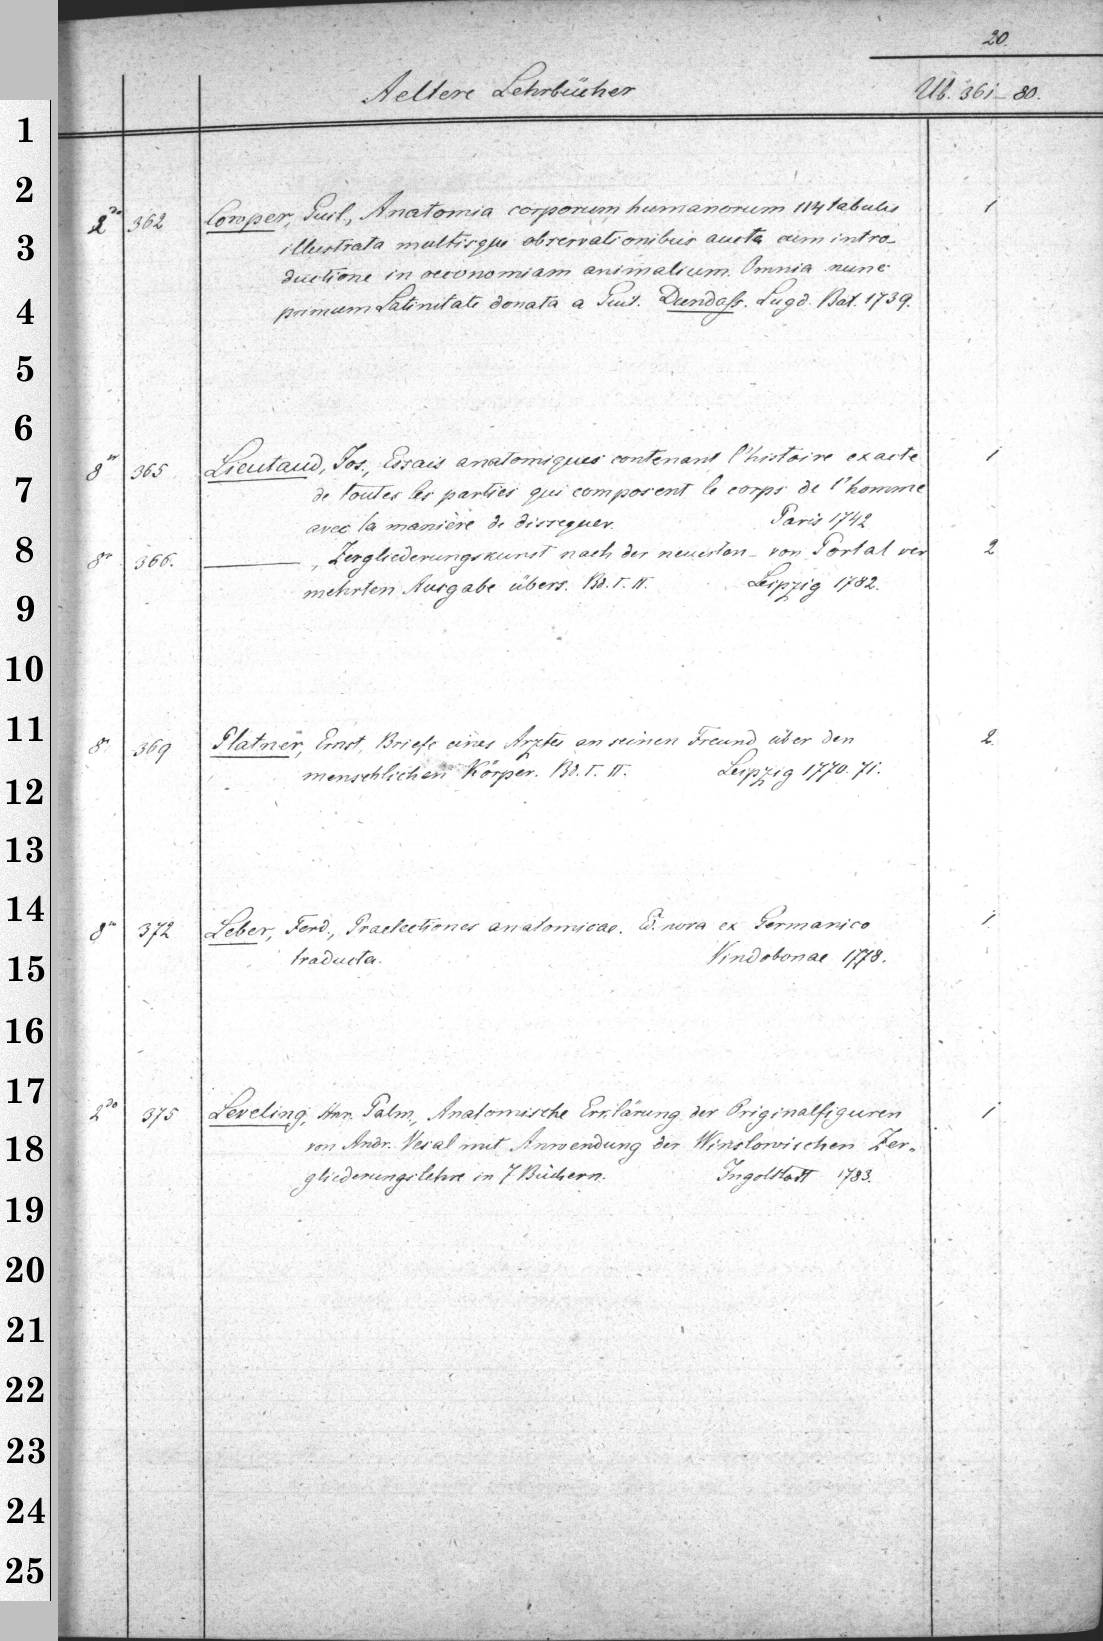 20.
Aeltere Lehrbücher
Ub. 361-80.
1
2
2do 362 Cowper, Guil., Anatomia corporum humanorum 114 tabulis 1
3
illustrata multisque observationibus aucta cum intro-
ductione in oeconomiam animalium. Omnia nunc
4
primum Latinitate donata a Guil. Dundass. Lugd. Bat. 1739.
5
6
8vo 365 Lieutaud, Jos., Essais anatomiques contenant l'histoire exacte 1
7
de toutes les parties qui composent le corps de l'homme
avec la manière de disséquer. Paris 1742
8
8vo 366. ———, Zergliederungskunst nach der neuesten von Portal ver 2
mehrten Ausgabe übers. Bd. I. II. Leipzig 1782.
9
10
11
8o 369 Platner, Ernst, Briefe eines Arztes an seinen Freund über den 2.
menschlichen Körper. Bd. I. II. Leipzig 1770. 71.
12
13
14
8vo 372 Leber, Ferd., Praelectiones anatomicae. Ed. nova ex Germanico 1
traducta. Vindobonae 1778.
15
16
17
2do 375 Leveling, Hnr. Palm., Anatomische Erklärung der Originalfiguren 1
von Andr. Vesal mit Anwendung der Winslowischen Zer-
18
gliederungslehre in 7 Büchern. Ingolstatt 1783.
19
20
21
22
23
24
25